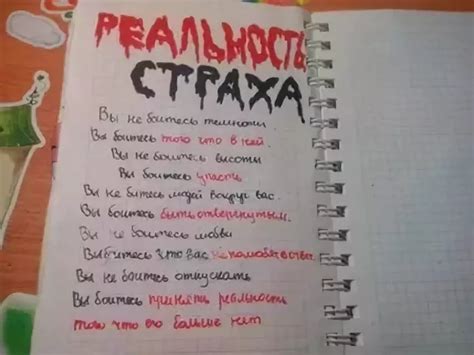 РЕАЛЬНОСТЬ
СТРАХА
Вы не боитесь темноты.
Вы боитесь того что в ней.
Вы не боитесь высоты
Вы боитесь упасть
Вы не битесь людей вокруг вас.
Вы боитесь быть отвергнутым.
Вы не боитесь любви
Вы битесь что вас не полюбят в ответ.
Вы не боитесь отпускать
Вы боитесь принять реальность
того что его больше нет